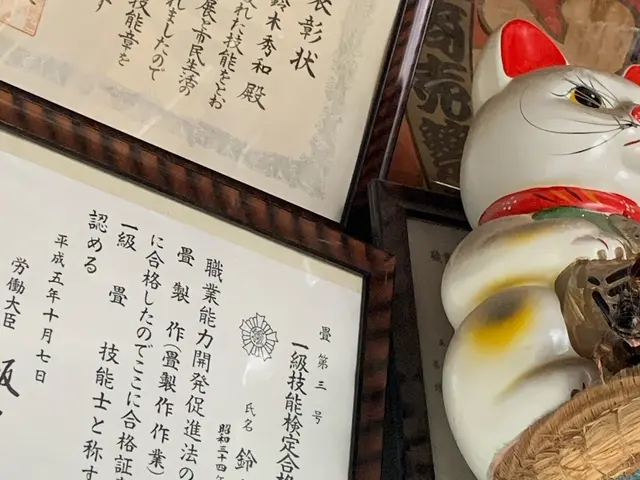 表彰状
鈴木秀和 殿
れた技能をお
展と市民生活の
れましたので
技能章を
商売繁
畳第三号
一級技能検定合格
氏名 鈴
昭和三十四年
職業能力開発促進法の
畳製作(畳製作作業)
に合格したのでここに合格証
一級 畳 技能士と称す
認める
平成五年十月七日
労働大臣